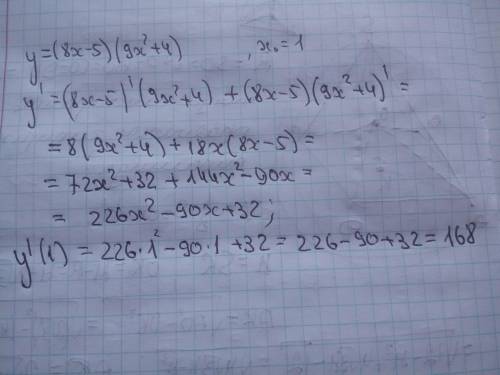 y=(8x-5)(9x²+4) , x₀=1
y'=(8x-5)'(9x²+4)+(8x-5)(9x²+4)'=
=8(9x²+4)+18x(8x-5)=
=72x²+32+144x²-90x=
= 226x²-90x+32;
y'(1)=226·1²-90·1+32=226-90+32=168